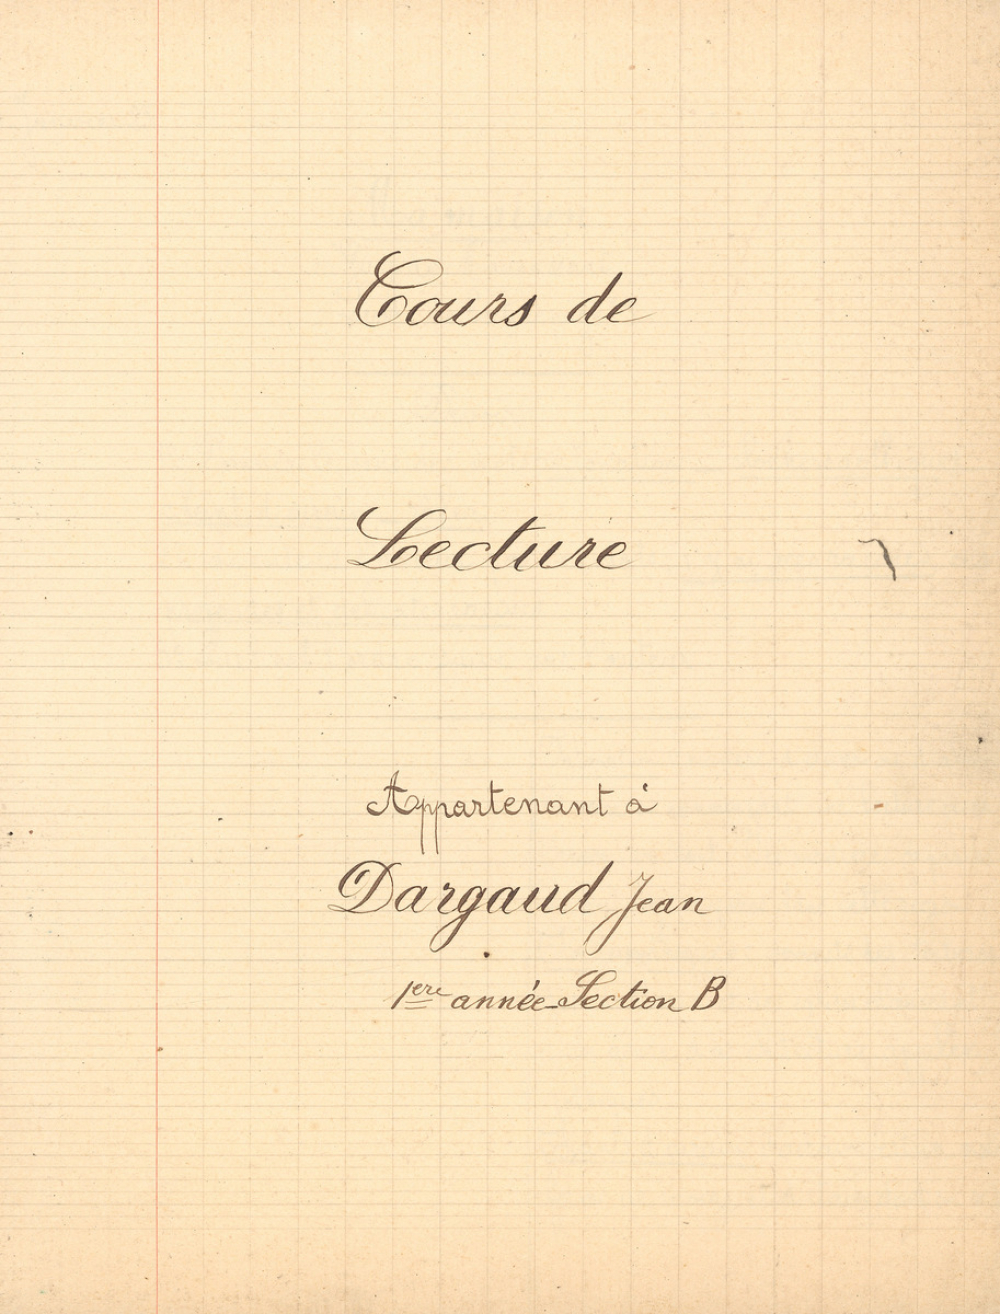 Cours de
Lecture
Appartenant à
Dargaud Jean
1ère année Section B